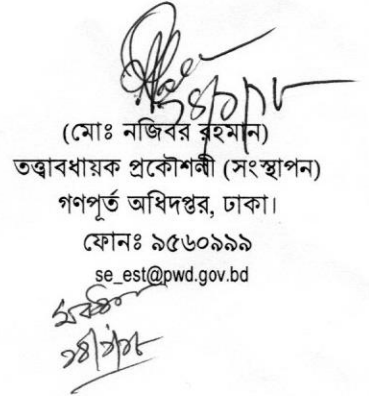 ১৪/১/১৮
(মোঃ নজিবর রহমান)
তত্ত্বাবধায়ক প্রকৌশলী (সংস্থাপন)
গণপূর্ত অধিদপ্তর, ঢাকা।
ফোনঃ ৯৫৬০৯৯৯
se_est@pwd.gov.bd